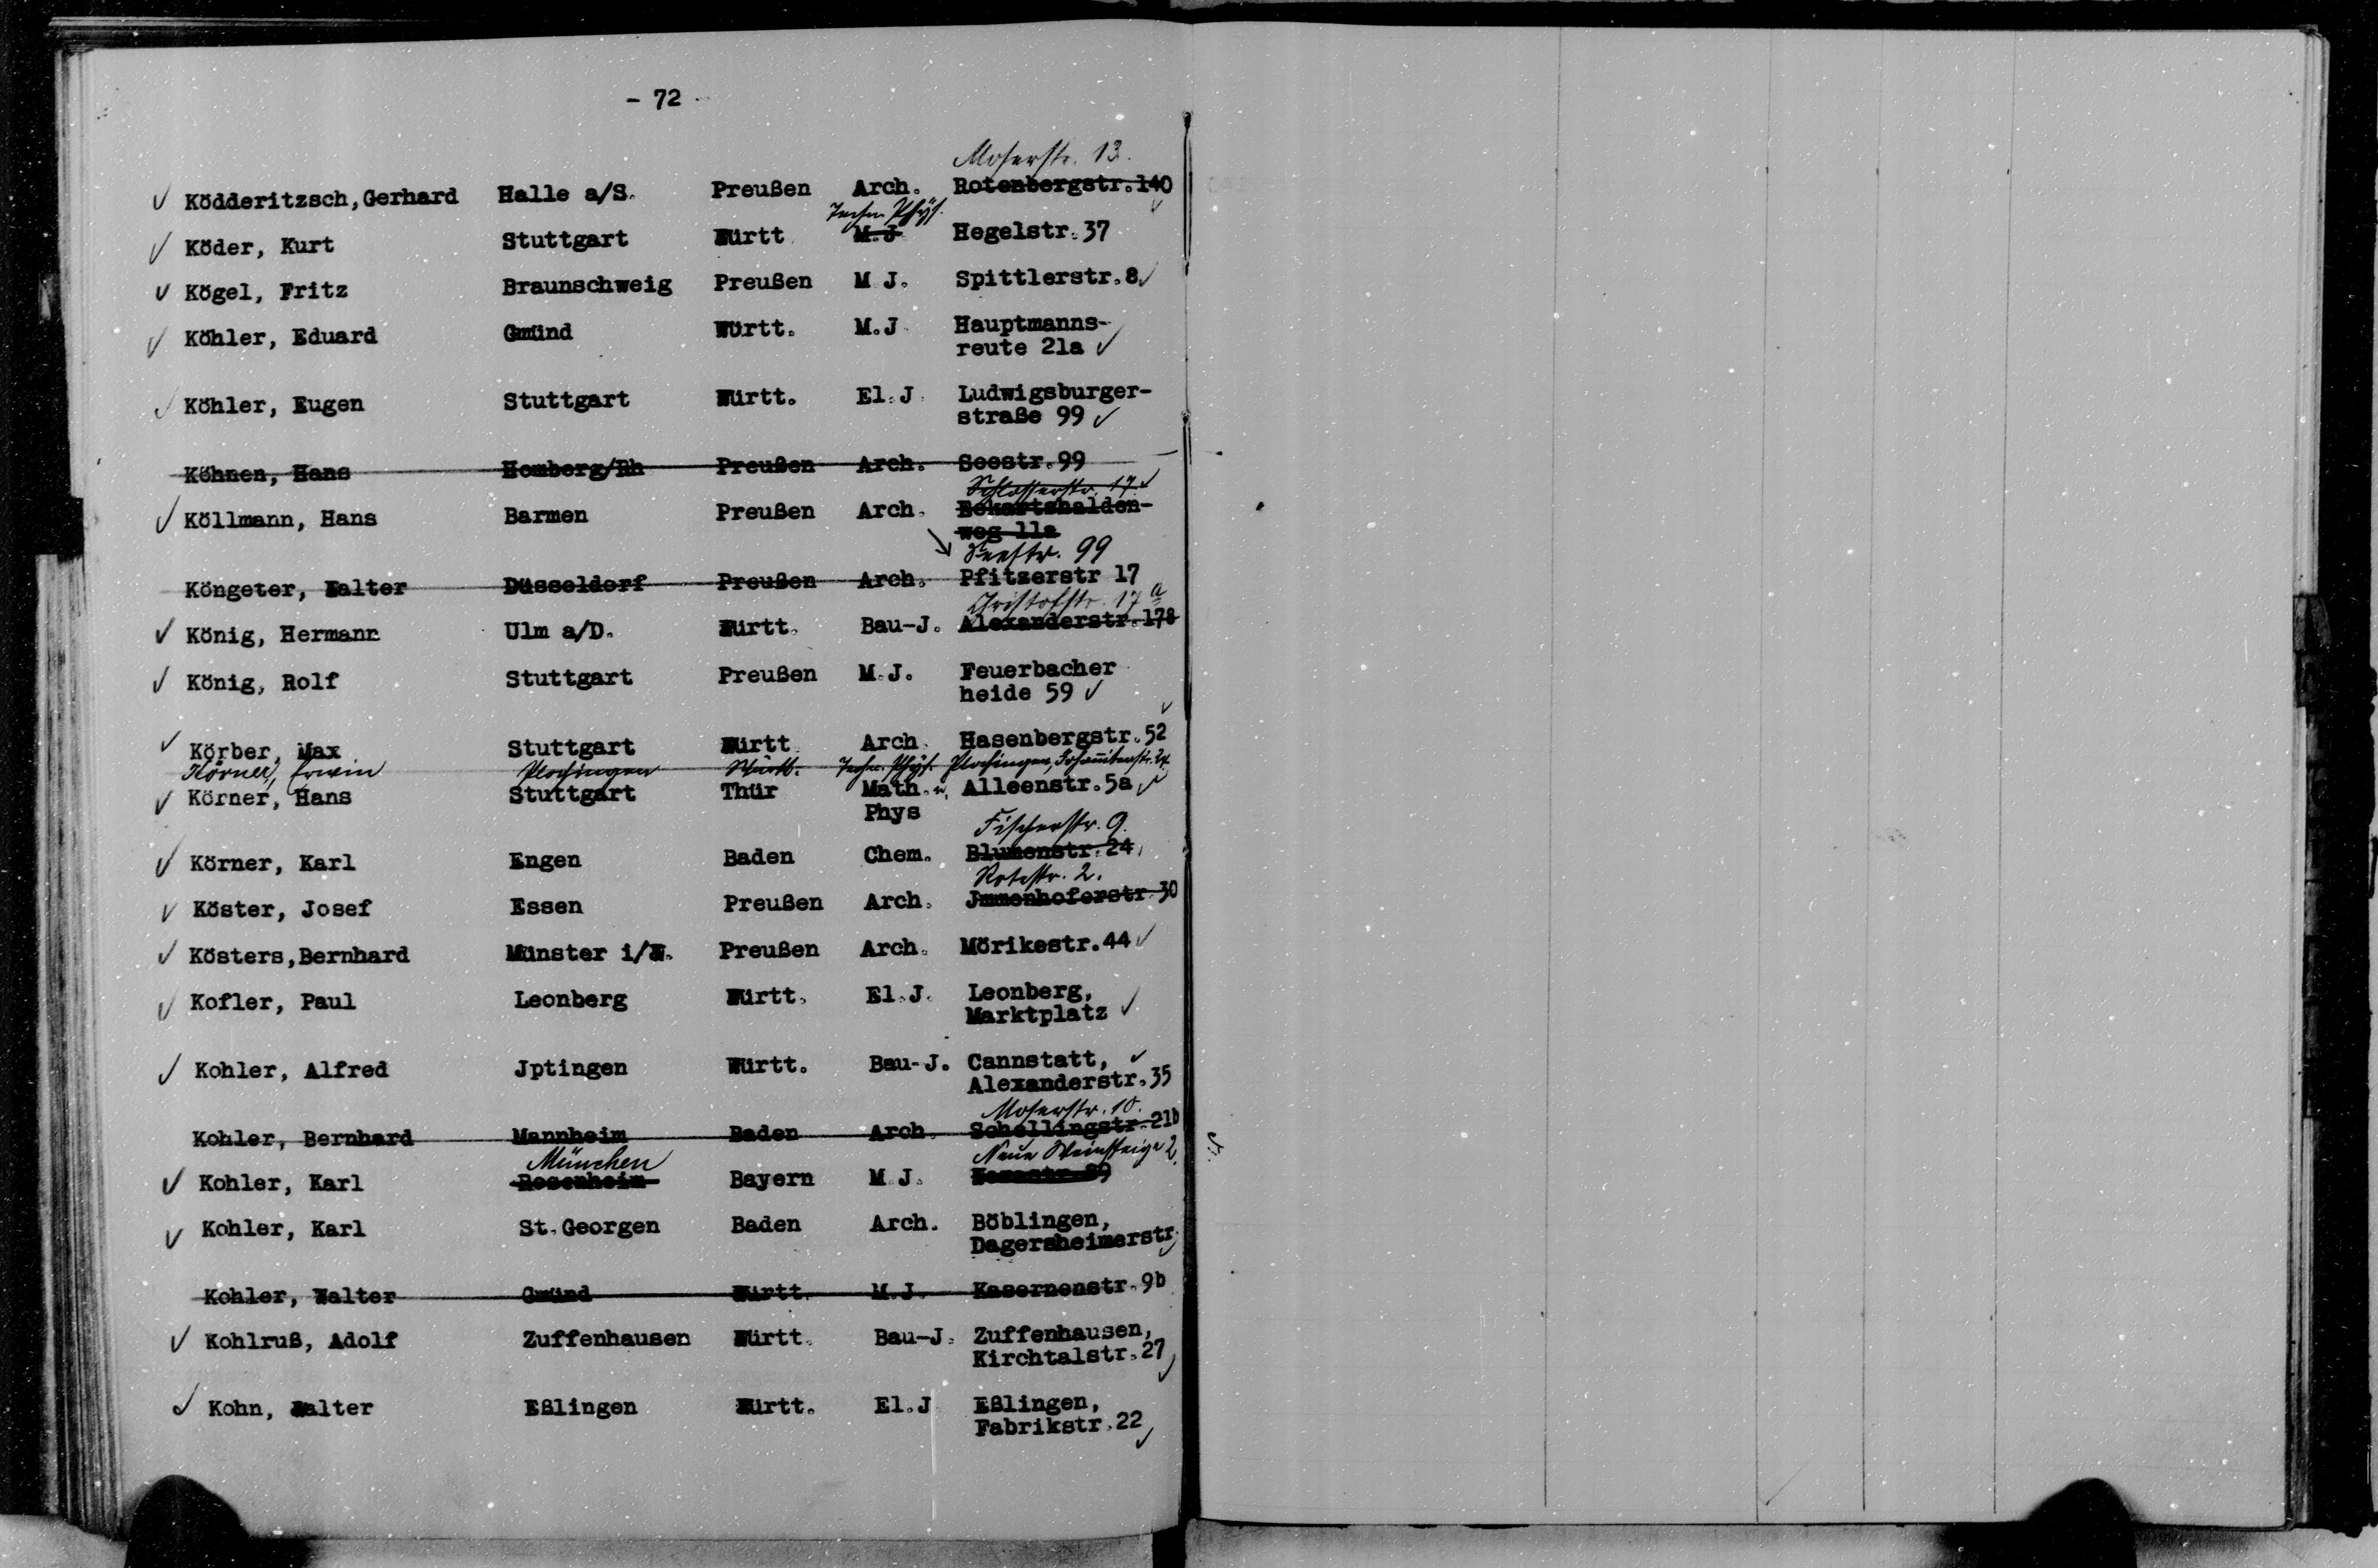 - 72
Moserstr. 13.
Ködderitzsch, Gerhard Halle a/S. Preußen Arch. Rotenbergstr. 140
Techn. Phys.
Köder, Kurt Stuttgart Württ M.J Hegelstr. 37
Kögel, Fritz Braunschweig Preußen M J. Spittlerstr. 8
Köhler, Eduard Gmünd Württ. M.J Hauptmanns-
reute 21a
Köhler, Eugen Stuttgart Württ. El. J. Ludwigsburger-
straße 99
Köhnen, Hans Homberg/Rh Preußen Arch. Seestr. 99
Schlosserstr. 17.
Köllmann, Hans Barmen Preußen Arch. Eckartshalden-
weg 11a
Seestr. 99
Köngeter, Walter Düsseldorf Preußen Arch. Pfitzerstr 17
Christofstr. 17 a
König, Hermann Ulm a/D. Württ. Bau-J. Alexanderstr. 178
König, Rolf Stuttgart Preußen M.J. Feuerbacher
heide 59
Körber, Max Stuttgart Württ Arch. Hasenbergstr. 52
Körner, Erwin Plochingen Württ. Techn. Phys. Plochingen, Johanniterstr.
Körner, Hans Stuttgart Thür Math. u. Alleenstr. 5a
Phys
Fischerstr. 9.
Körner, Karl Engen Baden Chem. Blumenstr. 24
Rotestr. 2.
Köster, Josef Essen Preußen Arch. Jmmenhoferstr 30
Kösters, Bernhard Münster i/W. Preußen Arch. Mörikestr. 44
Kofler, Paul Leonberg Württ. El.J. Leonberg,
Marktplatz
Kohler, Alfred Jptingen Württ. Bau-J. Cannstatt,
Alexanderstr. 35
Moserstr. 10.
Kohler, Bernhard Mannheim Baden Arch. Schellingstr. 21b
München Neue Weinsteige 2.
Kohler, Karl Rosenheim Bayern M J. 89
Kohler, Karl St. Georgen Baden Arch. Böblingen,
Dagersheimerstr.
Kohler, Walter Gmünd Württ. M.J. Kasernenstr. 9b
Kohlruß, Adolf Zuffenhausen Württ. Bau-J. Zuffenhausen,
Kirchtalstr. 27
Kohn, Walter Eßlingen Württ. El.J Eßlingen,
Fabrikstr. 22